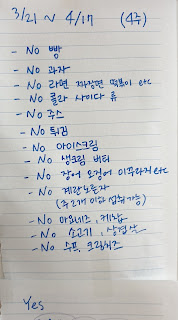 3/21 ~ 4/17 (4주)
- No 빵
- No 과자
- No 라면 짜장면 떡볶이 etc
- No 콜라 사이다 류
- No 주스
- No 튀김
- No 아이스크림
- No 생크림 버터
- No 장어 오징어 미꾸라지 etc
- No 계란노른자
(주 2개 이하 섭취 가능)
- No 마요네즈, 케찹
- No 소고기, 삼겹살
- No 수프, 크림치즈
Yes